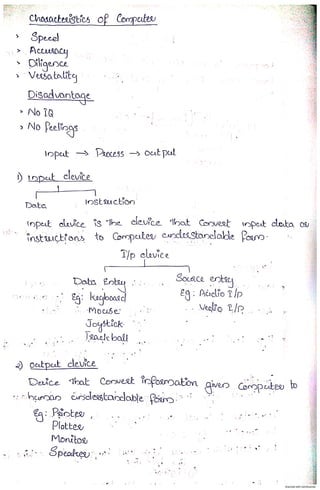 Characteristics of Computer
> Speed
> Accuracy
> Diligence
> Versatality
Disadvantage
> No IQ
> No feelings
input → Process → output
1) input device
Data instruction
input device is the device that convert input data or
instructions to Computer understandable form.
I/p device
Data Entry Source entry
Eg: keyboard Eg: Audio I/P
Mouse Vedio I/P
Joystick
Trackball
2) output device
Device that Convert information given Computer to
human understandable form.
Eg: Printer
Plotter
Monitor
Speaker